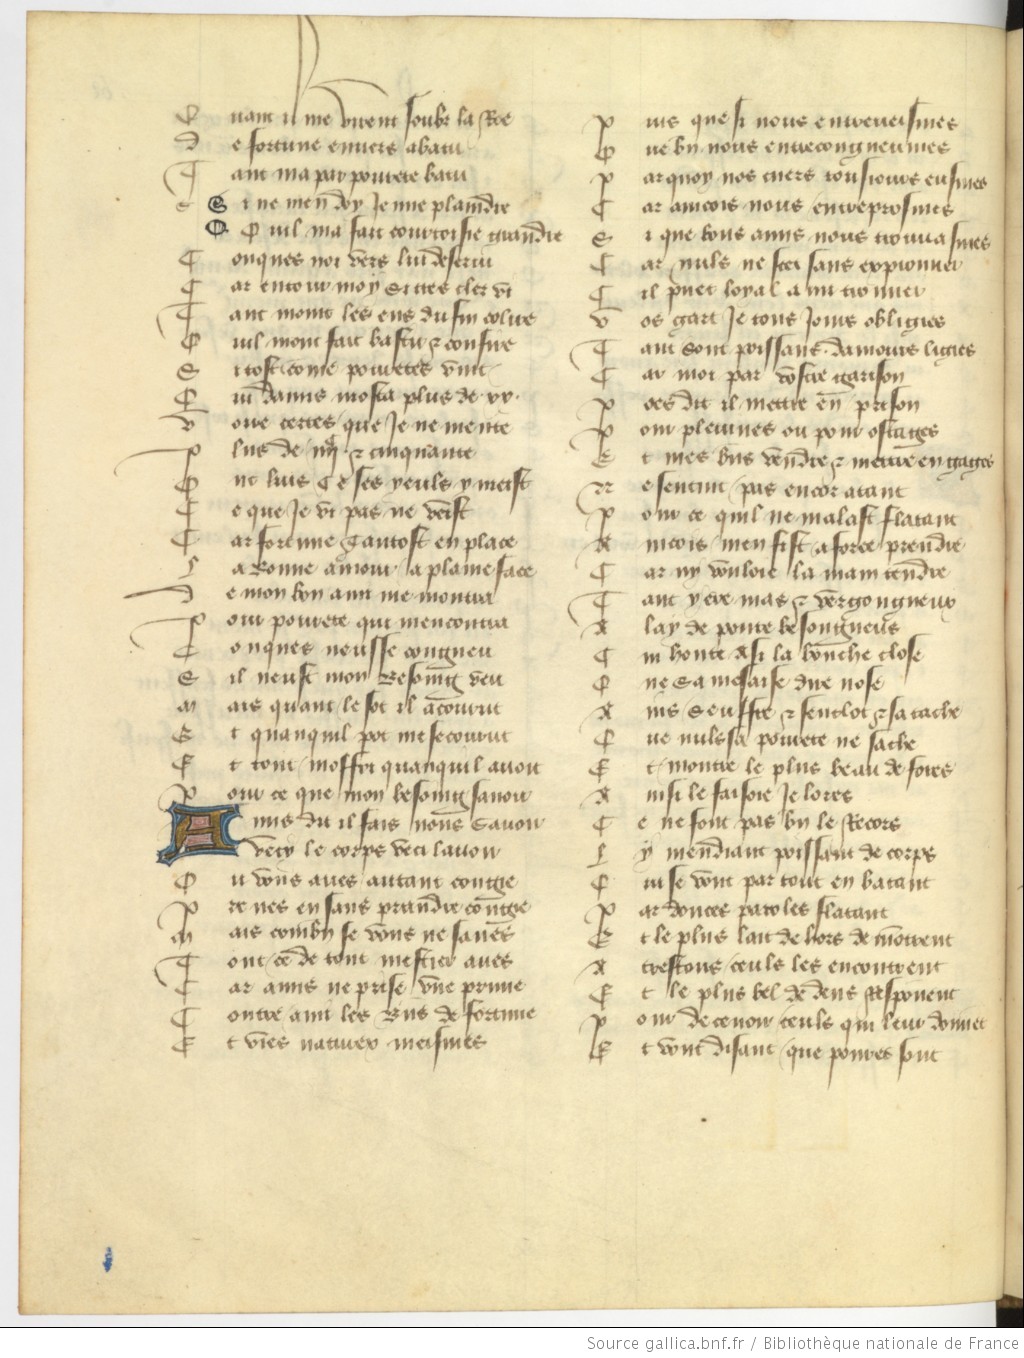 Quant il me virent soubz la Roe
De fortune envers abatu
Tant ma par povrete batu
Si ne men doy Je mie plaindre
Quil ma fait courtoisie grandre
Conques noi vers lui deservi
Car entour moy Si tres cler vi
Tant moint les eus du fin colire
Quil mont fait bastir ⁊ confire
Si tost come povretes vint
Qui damis mosta plus de xx.
Voire certes que Je ne mente
Plus de iiijc ⁊ cinquante
Nc luis Ce ses yeuls y meist
Ce que Je vi pas ne veist
Car fortune tantost en place
La Bonne amour a plaine face
De mon bon ami me monstra
Pour povrete qui mencontra
Conques neusse congneu
Sil neust mon Besoing veu
Mais quant le sot il acourut
Et quanquil pot me secourut
Et tout moffri quanquil avoit
Pour ce que mon besoing savoit
Amis dit il fais vous Savoir
Vecy le corps veci lavoir
Ou vous aves autant congie
Prenes en sans prandre congie
Mais combn se vous ne saves
Tont ce de tout mestier aves
Car amis ne prise une prune
Contre ami les Bns de fortune
Et vies naturex meismes
Puis que si nous entreveismes
Que bn nous entrecongneumes
Parquoy nos cuers tousiours eusmes
Car aincois nous entreprosmes
Si que bons amis nous trouvasmes
Car nuls ne scet sans exprimer
Cil puet loyal ami trouver
Vos gart Je tous Jours obligies
Tant Sont puissans damours ligies
Car moi par vostre garison
Poes dit il mettre en prison
Pour pleuines ou pour ostages
Et mes bns vendre ⁊ mettre en gages
Ne sentint pas encor atant
Pour ce quil ne malast flatant
Aincois men fist a force prendre
Car ny vouloie la main tendre
Tant yere mas ⁊ vergongneux
A lay de povre besongneus
Cui honte a si la bouche close
Que Sa mesaise dire nose
Ains Seuffre ⁊ senclot ⁊ sa cache
Que nuls sa povrete ne sache
Et monstre le plus beau de fors
Ainsi le faisoie Je lores
Ce ne font pas bn le Recors
Ly mendiant puissant de corps
Qui se vont par tout en batant
Par douces paroles flatant
Et le plus lait dehors demonstrent
A trestous ceuls les encontrent
Et le plus bel dedens Responent
Pour decevoir ceuls qui leur donnet
Et vont disant que povres sont
Source gallica.bnf.fr / Bibliothèque nationale de France